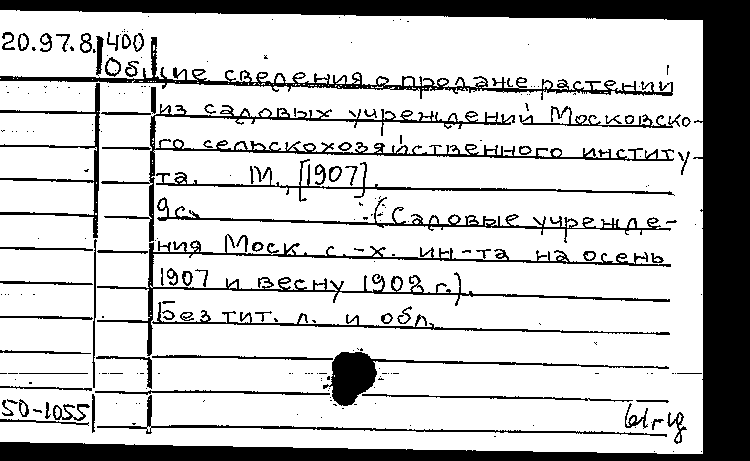 20.97.8.400
Общие сведения о продаже растений
из садовых учреждений Московско-
го сельскохозяйственного институ-
та. М., [1907].
9с. (Садовые учрежде-
ния Моск. с.-х. ин-та на осень
1907 и весну 1908 г.).
Без тит. л. и обл.
50-1055